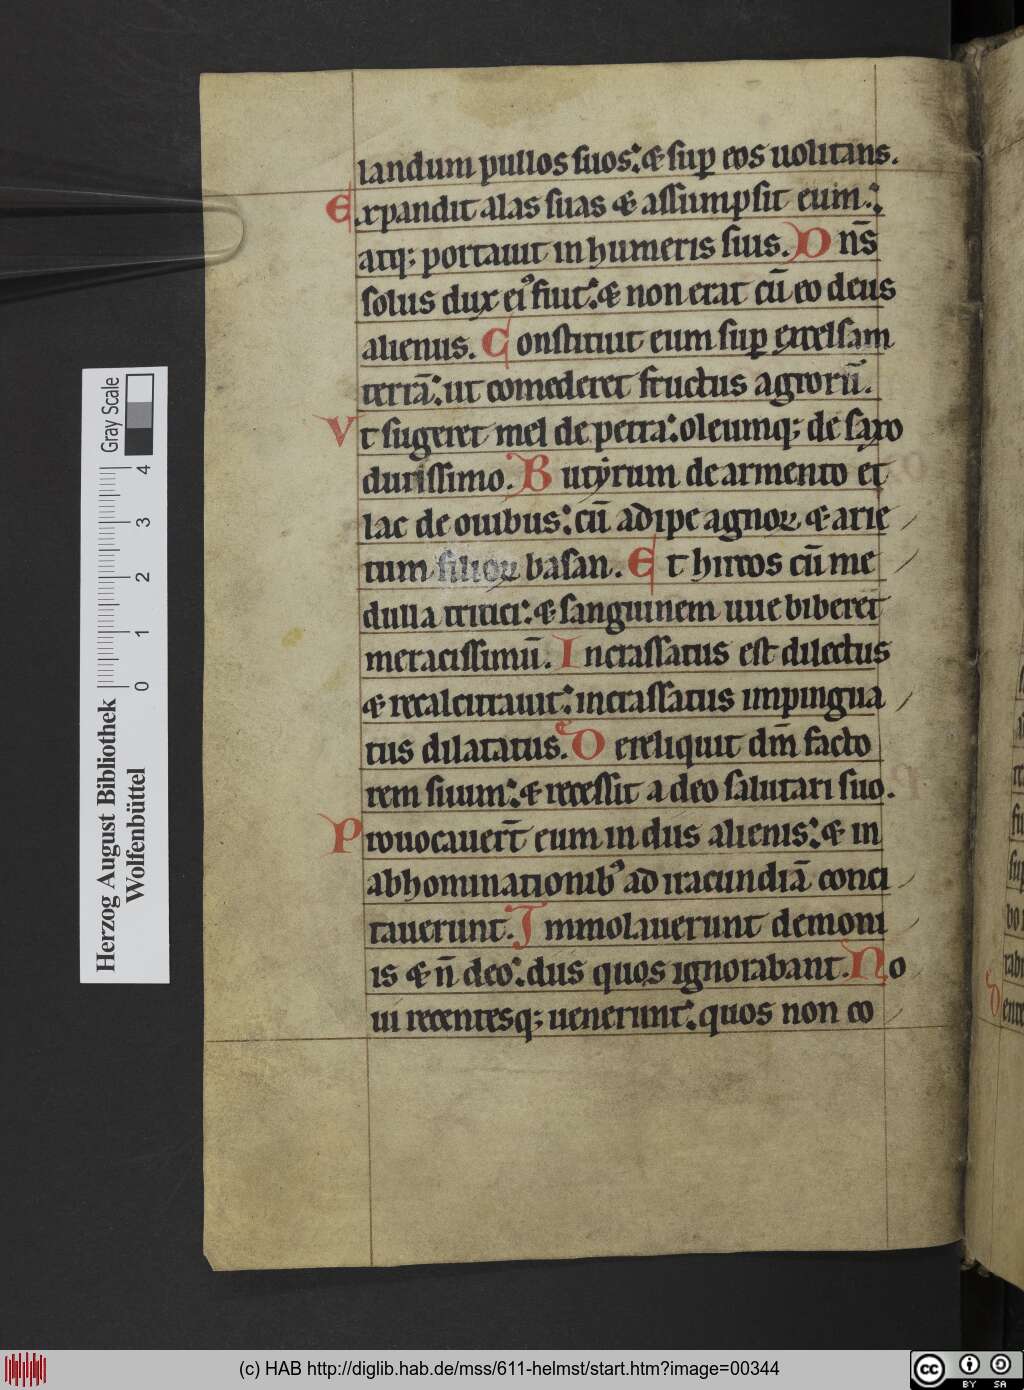 landum pullos suos: & sup̱ eos uolitans.
Expandit alas suas & assumpsit eum:
atq; portauit in humeris suis. Dn̄s
solus dux eiꝰ fuit: & non erat cū eo deus
alienus. Constituit eum sup̱ excelsam
terrā: ut comederet fructus agrorū.
Vt sugeret mel de petra: oleumq; de saxo
durissimo. Butẏrum de armento et
lac de ouibus: cū adipe agnoꝝ & arie
tum filioꝝ basan. Et hircos cū me
dulla tritici: & sanguinem uue biberet
meracissimū. Incrassatus est dilectus
& recalcitrauit: incrassatus impingua
tus dilatatus. Dereliquit dm̄ facto
rem suum: & recessit a deo salutari suo.
Prouocauer̄t eum in diis alienis: & in
abhominationibꝰ ad iracundiā conci
tauerunt. Immolauerunt demoni
is & n̄ deo: diis quos ignorabant. No
ui recentesq; uenerunt: quos non co
Herzog August Bibliothek
Wolfenbüttel
Gray Scale
0 1 2 3 4
(c) HAB http://diglib.hab.de/mss/611-helmst/start.htm?image=00344
cc BY SA